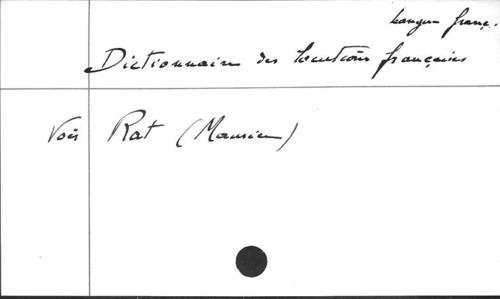 Langue franç.
Dictionnaire des locutions françaises
Voir Rat (Maurice)